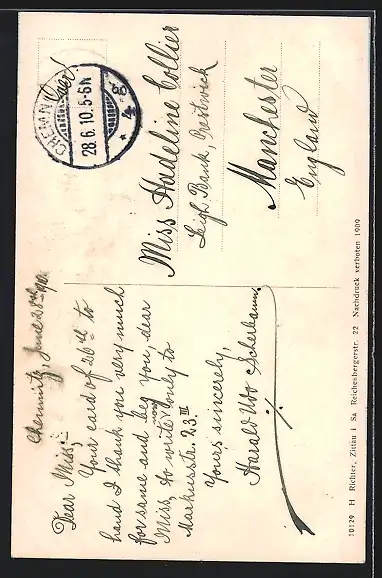 Chemnitz, June 28th 1910.
Dear Miss,
Your card of 26th to
hand I thank you very much
for same and beg you, dear
Miss, to write only to
Markusstr. 23 III
Yours sincerely,
Harald Uwo Scherbaum.
CHEMNITZ
28.6.10.5-6N
Miss Madeline Collier
Leigh Bank, Prestwick
Manchester
England
10129 H Richter, Zittau i Sa Reichenbergerstr. 22 Nachdruck verboten 1909